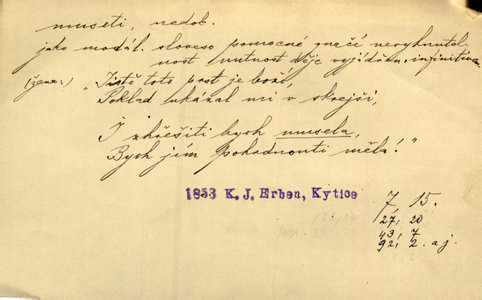 museti, nedok.
jako modál. sloveso pomocné značí nevyhnutel-
nost, nutnost děje vyjádřen. infinitivem
(žena:) „Jistě toto prst je boží,
Poklad ukázal mi v skrejši,
I zhřešiti bych musela,
Bych jím pohrdnouti měla!"
1853 K. J. Erben, Kytice
7, 15.
27, 20
43, 7
92, 2. aj.